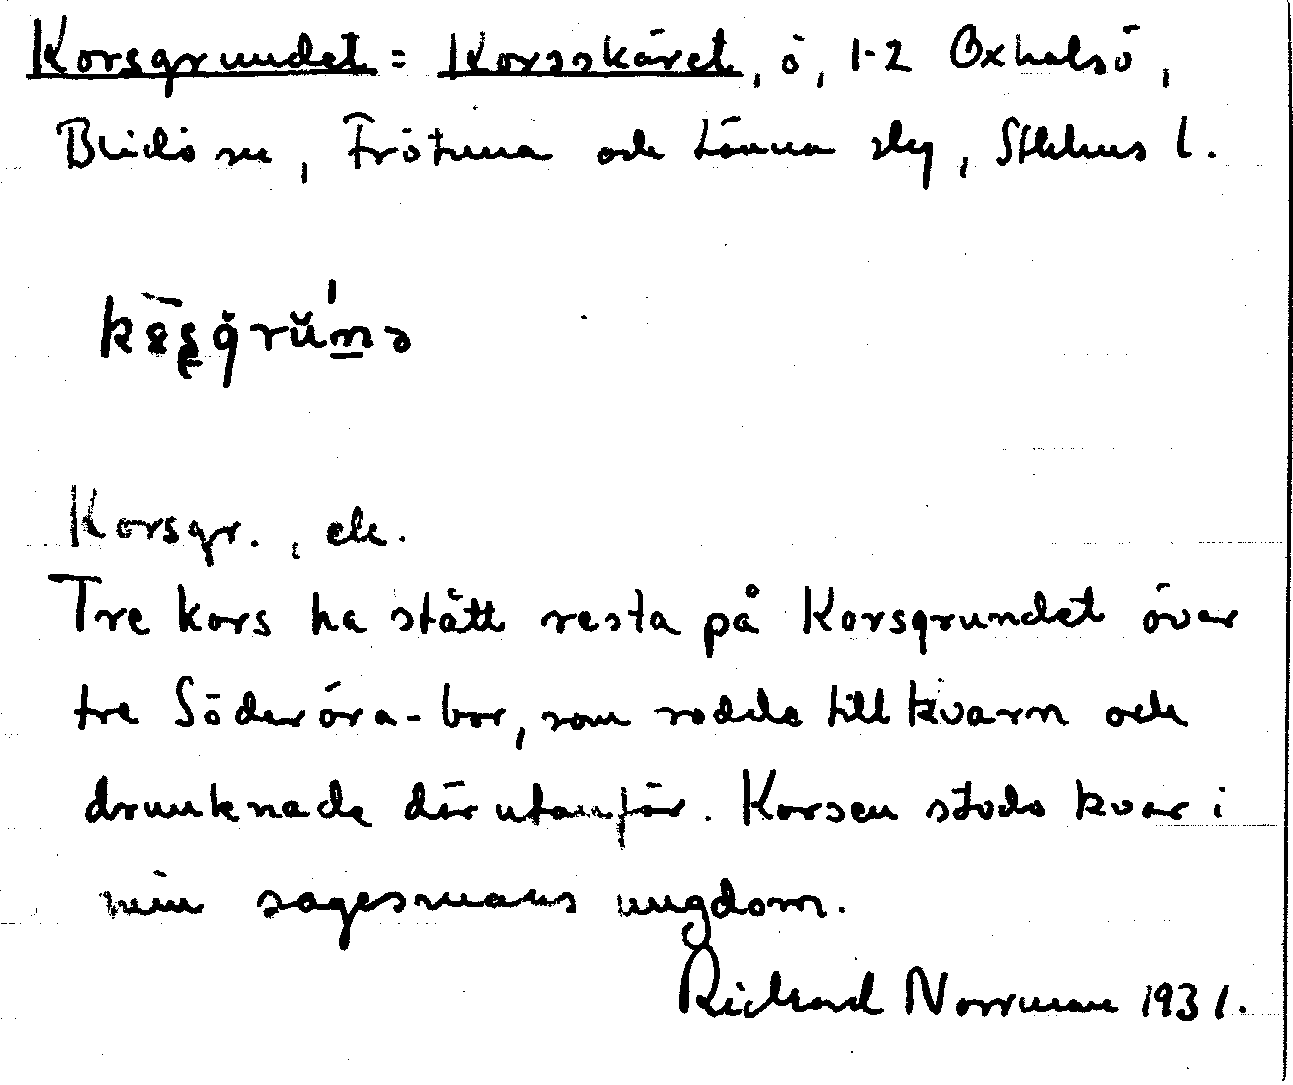 Korsgrundet = Korsskäret, ö, 1-2 Oxhalsö,
Blidö sn, Frötuna och Länna slg, Sthlms l.
Korsgr., ek.
Tre kors ha stått resta på Korsgrundet över
tre Söderöra-bor, som rodde till kvarn och
drunknade där utanför. Korsen stodo kvar i
min sagesmans ungdom.
Rickard Norrman 1931.